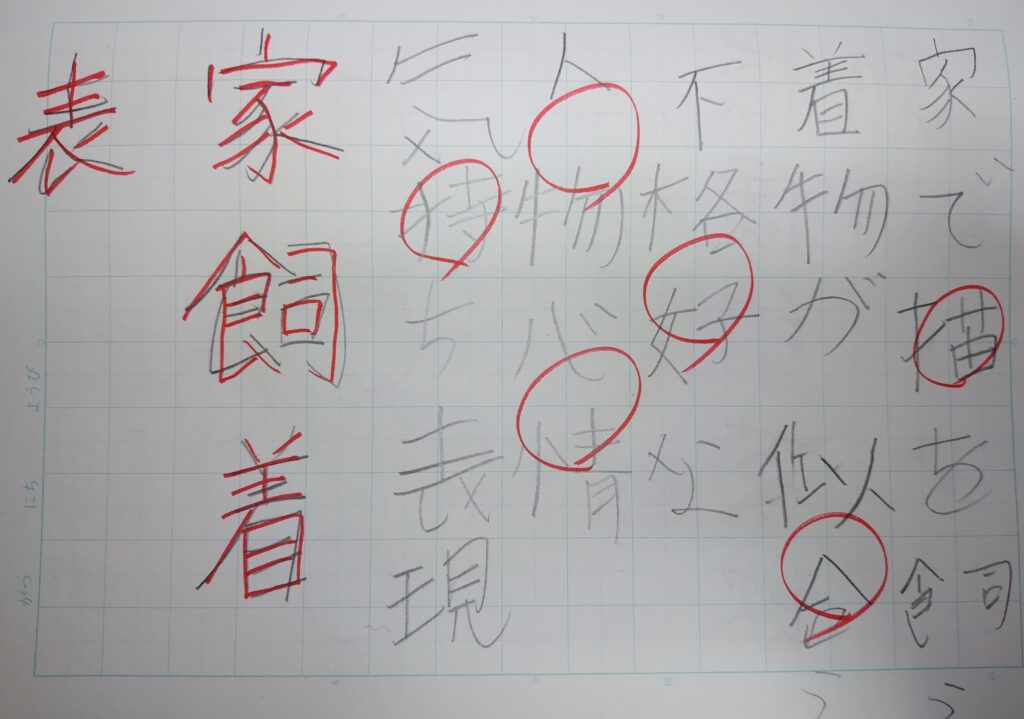 家で描を飼う
着物が似合う
不格好な
人物心情
気持ち表現
家飼着
表
がつ　にち　ようび